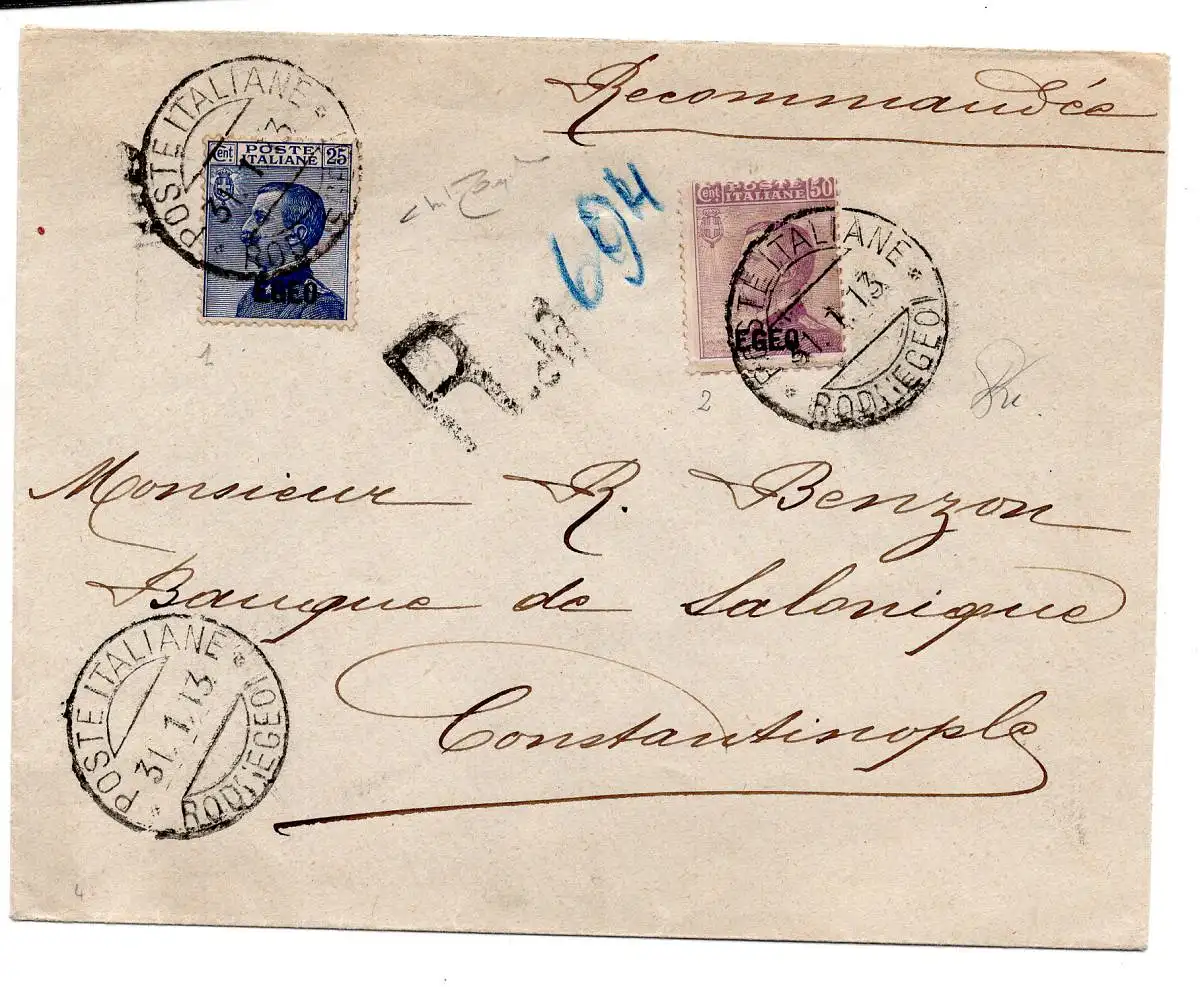 Recommandée
POSTE ITALIANE
31.1.13
RODI (EGEO)
Cent POSTE ITALIANE 25
EGEO
694
Cent POSTE ITALIANE 50
EGEO
POSTE ITALIANE
31.1.13
RODI (EGEO)
R
1
2
Monsieur R. Benzon
Banque de Salonique
Constantinople
POSTE ITALIANE
31.1.13
RODI (EGEO)
4